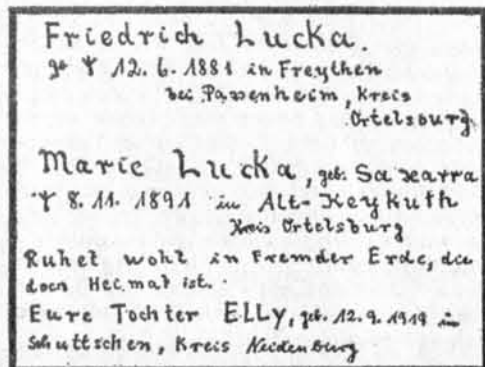 Friedrich Lucka
ge ᛉ 12. 6. 1881 in Freythen
bei Passenheim, Kreis
Ortelsburg
Marie Lucka, geb. Saxarra
ᛉ 8. 11. 1891 in Alt-Keykuth
Kreis Ortelsburg
Ruhet wohl in Fremder Erde, die
doch Heimat ist.
Eure Tochter Elly, geb. 12. 9. 1919 in
Schuttschen, Kreis Neidenburg